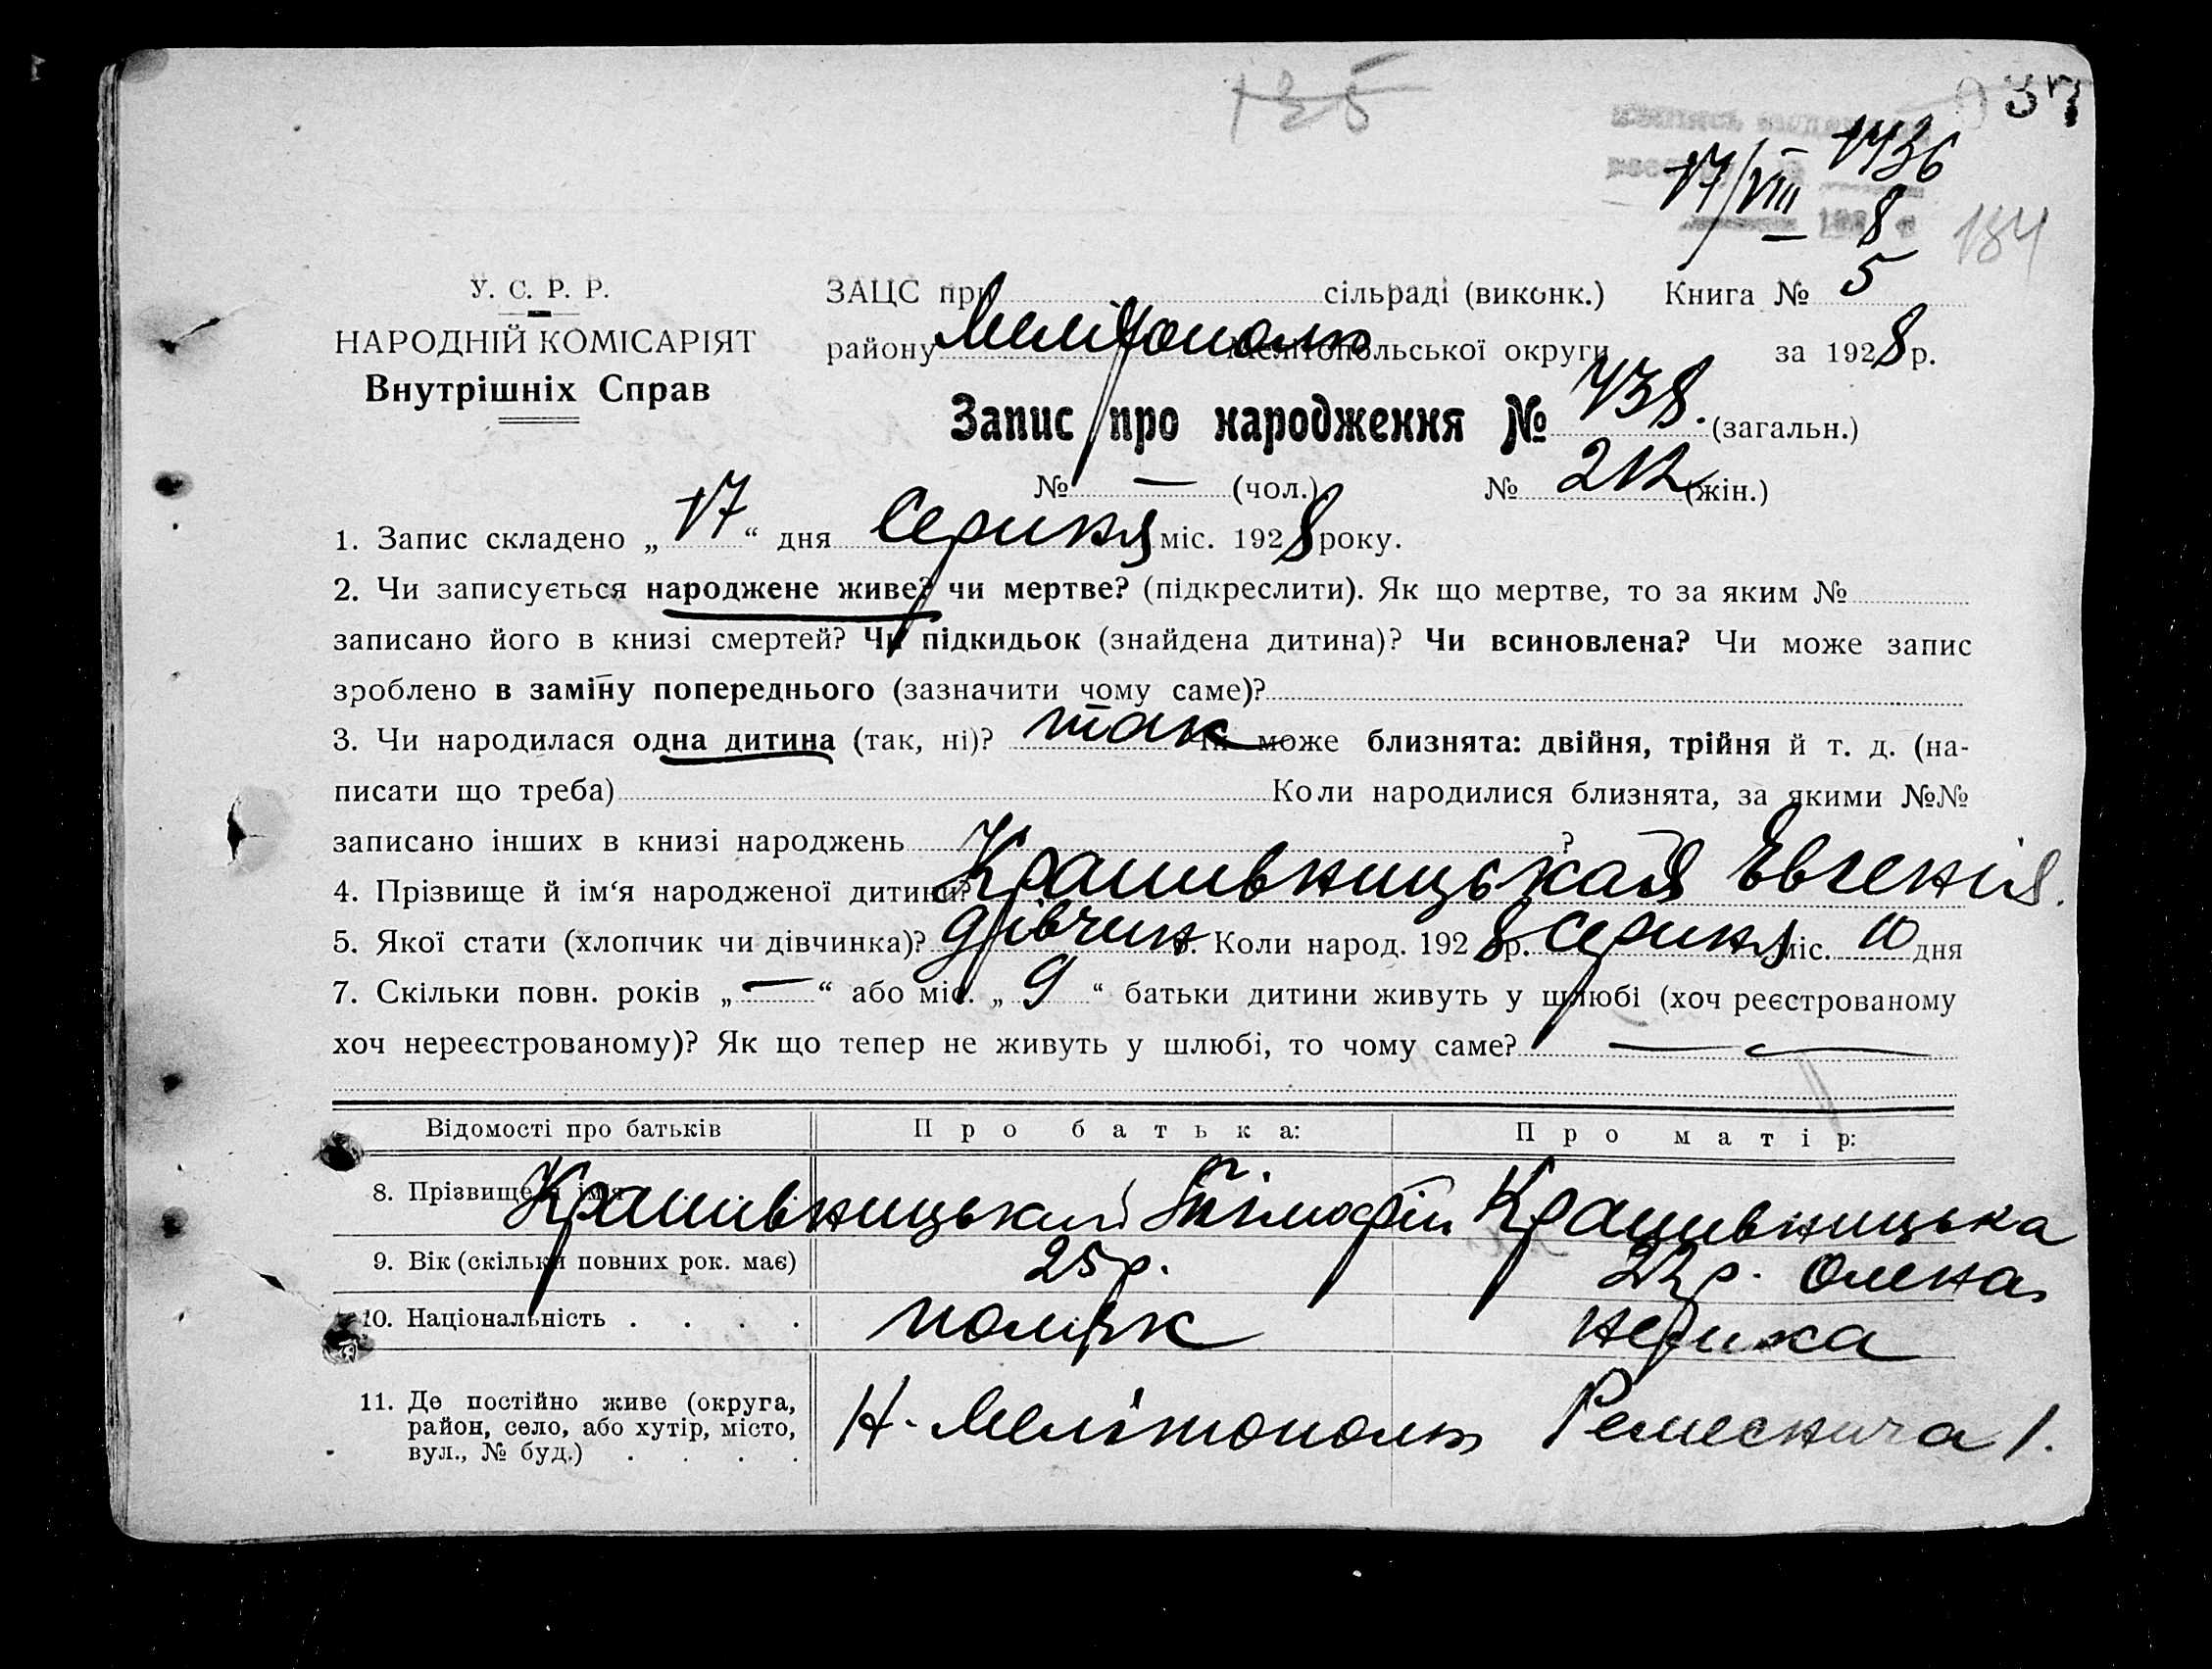 135
37
17/VIII 1436
8
184
У. С. Р. Р.
НАРОДНІЙ КОМІСАРІЯТ
Внутрішніх Справ
ЗАЦС при сільраді (виконк.) Книга № 5
району Мелітополь Мелітопольської округи за 1928 р.
Запис про народження № 738. (загальн.)
№ — (чол.) № 212 (жін.)
1. Запис складено „17“ дня Серпня міс. 1928 року.
2. Чи записується народжене живе? чи мертве? (підкреслити). Як що мертве, то за яким №
записано його в книзі смертей? Чи підкидьок (знайдена дитина)? Чи всиновлена? Чи може запис
зроблено в заміну попереднього (зазначити чому саме)?
3. Чи народилася одна дитина (так, ні)? так Чи може близнята: двійня, трійня й т. д. (на-
писати що треба) Коли народилися близнята, за якими №№
записано інших в книзі народжень ?
4. Прізвище й ім‘я народженої дитини? Крашивницькая Евгенія.
5. Якої стати (хлопчик чи дівчинка)? дівчин. Коли народ. 1928 р. Серпня міс. 10 дня
7. Скільки повн. років „—“ або міс. „9“ батьки дитини живуть у шлюбі (хоч реєстрованому
хоч нереєстрованому)? Як що тепер не живуть у шлюбі, то чому саме? —
Відомості про батьків Про батька: Про матір:
8. Прізвище й ім‘я Крашивницький Тімофій Крашивницька
9. Вік (скільки повних рок. має) 25 р. 22 р. Олена
10. Національність . . . . поляк
11. Де постійно живе (округа,
район, село, або хутір, місто,
вул., № буд.) . . . . Н-Мелітополь 1.